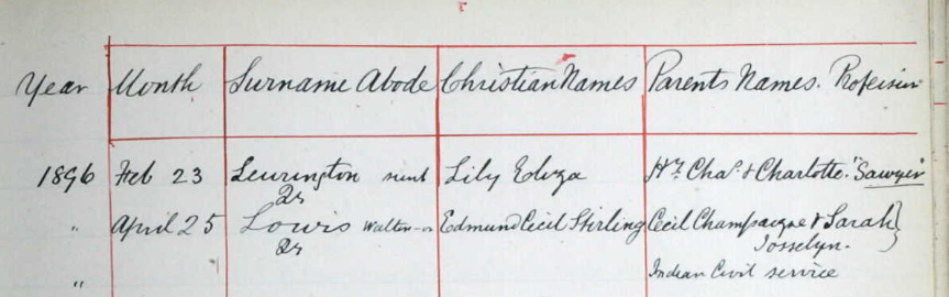 Year Month Surname Abode Christian Names Parents Names. Profession
1896 Feb 23 Leurington Lily Eliza Hy. Chas. & Charlotte. "Sawyer"
" April 25 Lowis Walton-on Edmund Cecil Stirling Cecil Champagne & Sarah }
Josselyn.
Indian Civil service
"